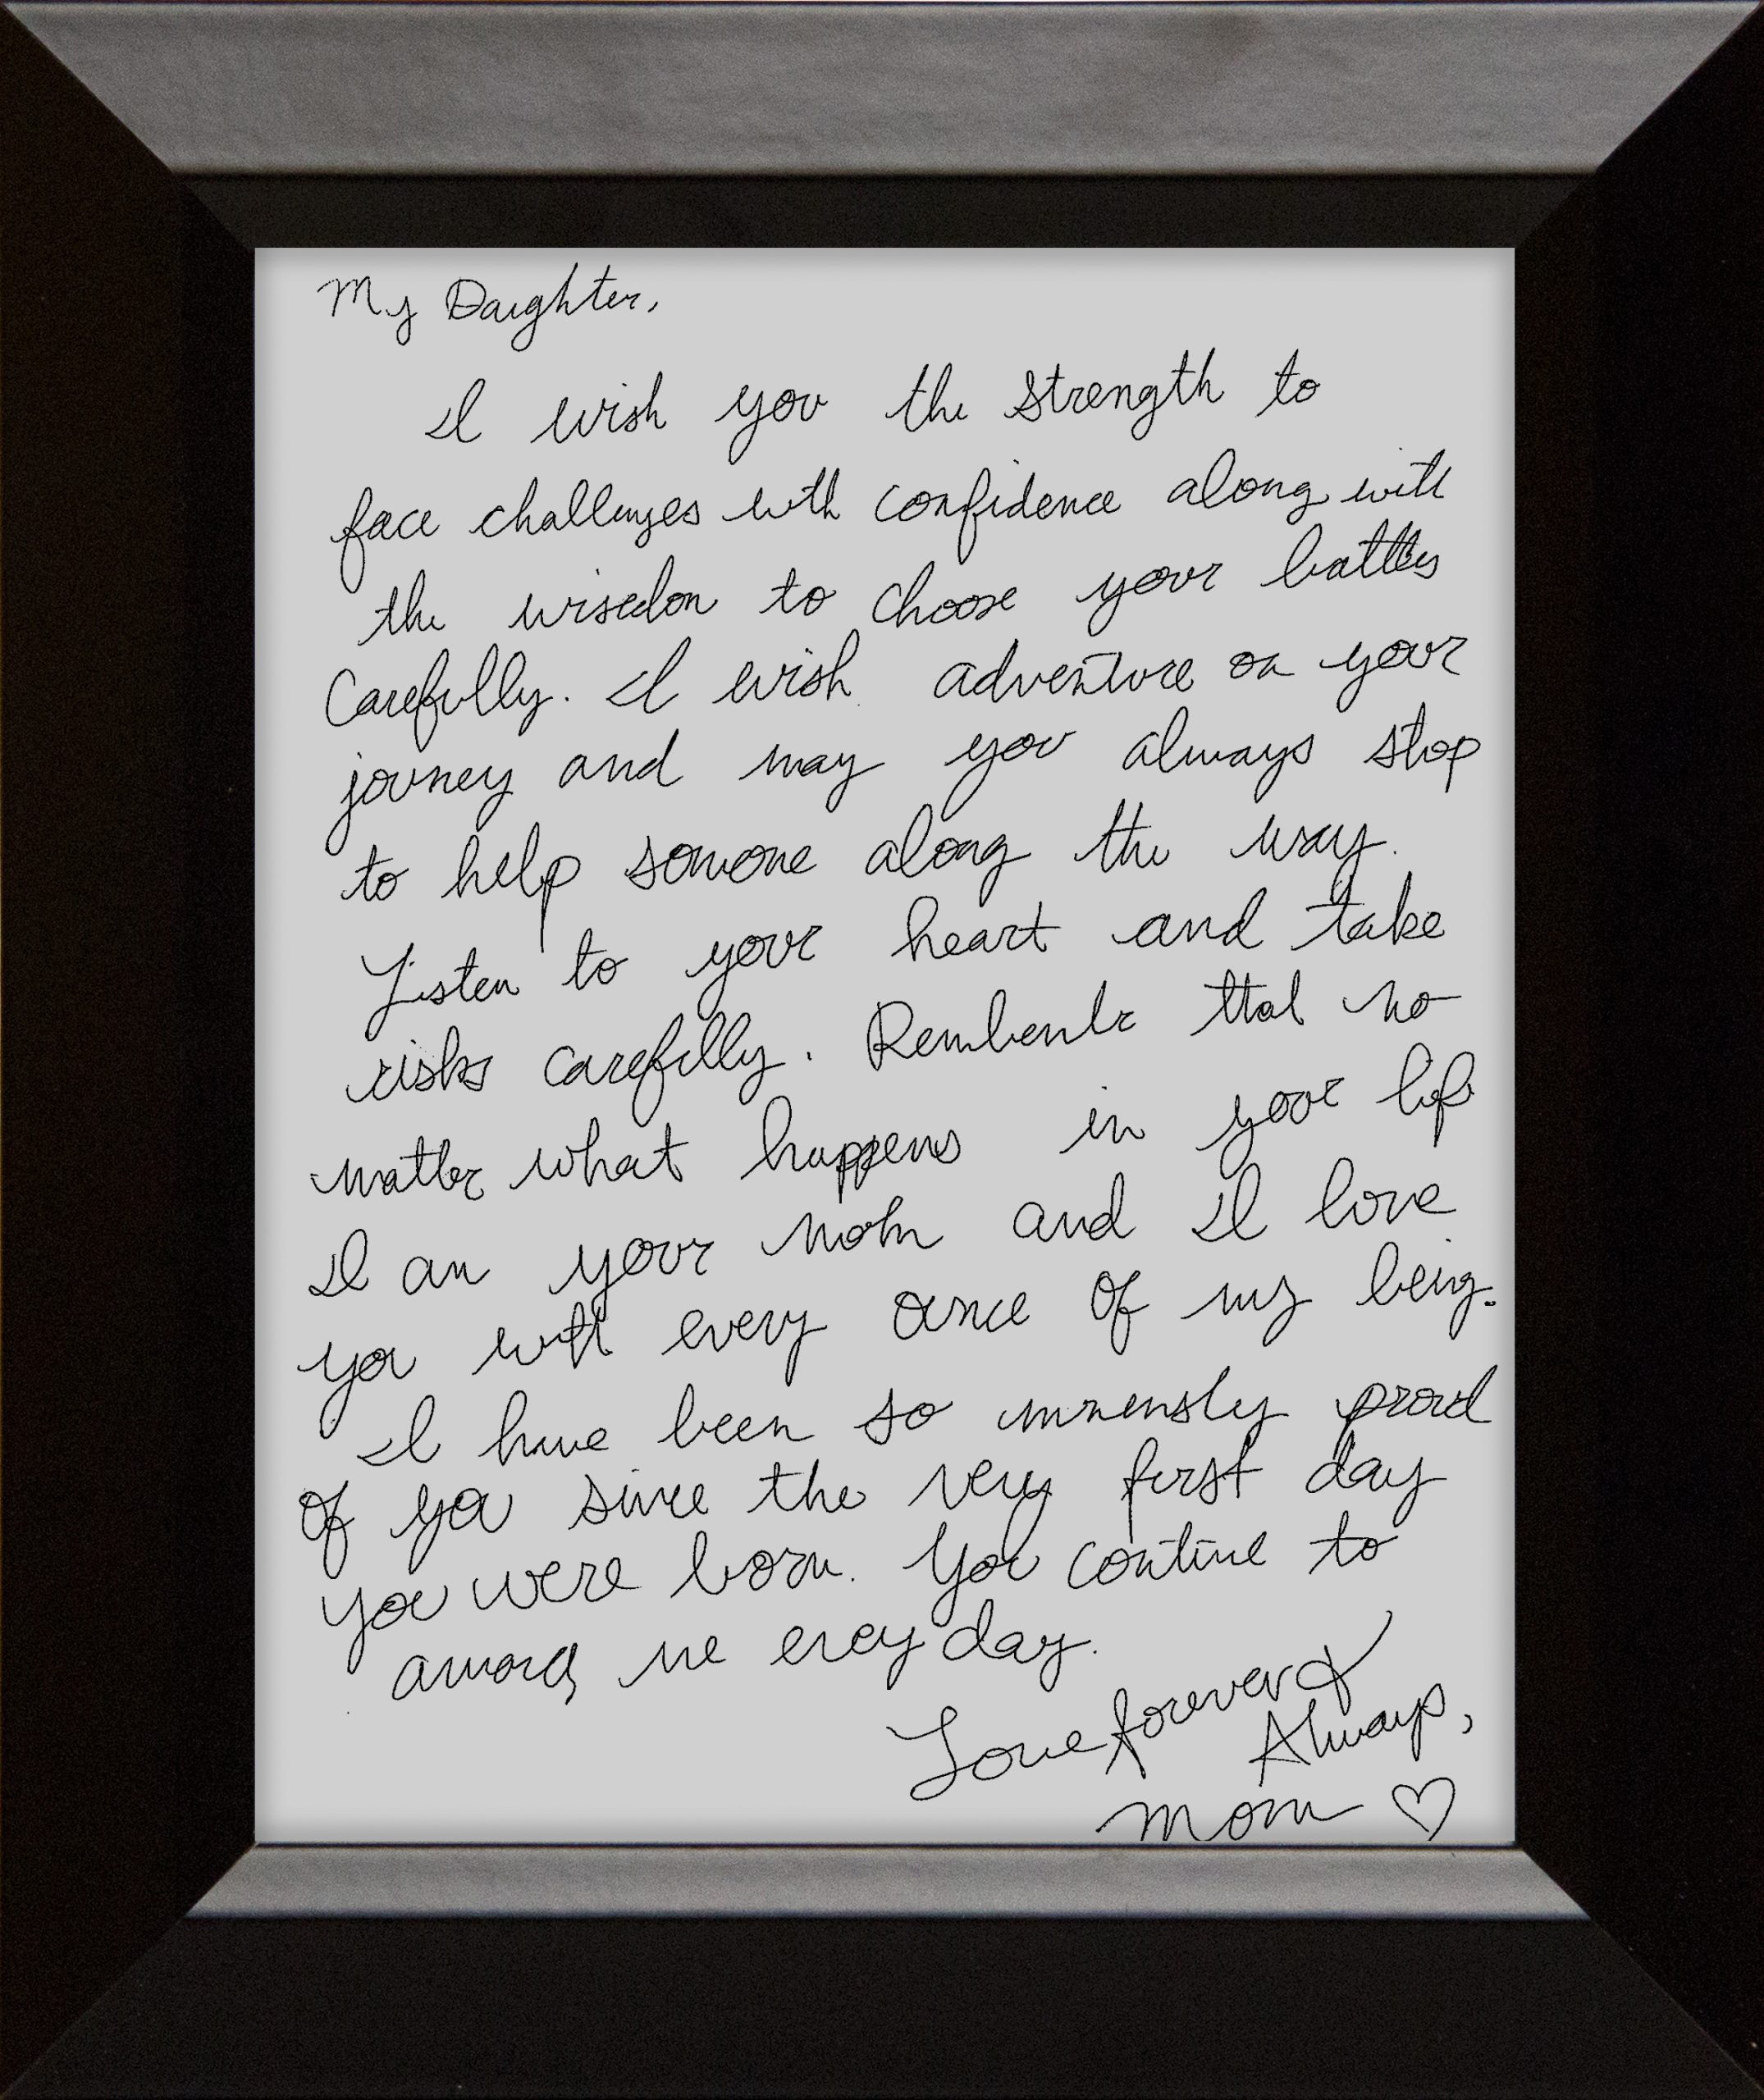 My Daughter,
I wish you the strength to
face challenges with confidence along with
the wisedom to choose your battles
Carefully. I wish adventure on your
journey and may you always stop
to help someone along the way.
Listen to your heart and take
risks carefully. Remember that no
matter what happens in your life
I am your Mom and I love
you with every ounce of my being.
I have been so immensly proud
of you since the very first day
you were born. You continue to
me every day.
Love forever &
Always,
Mom ♡